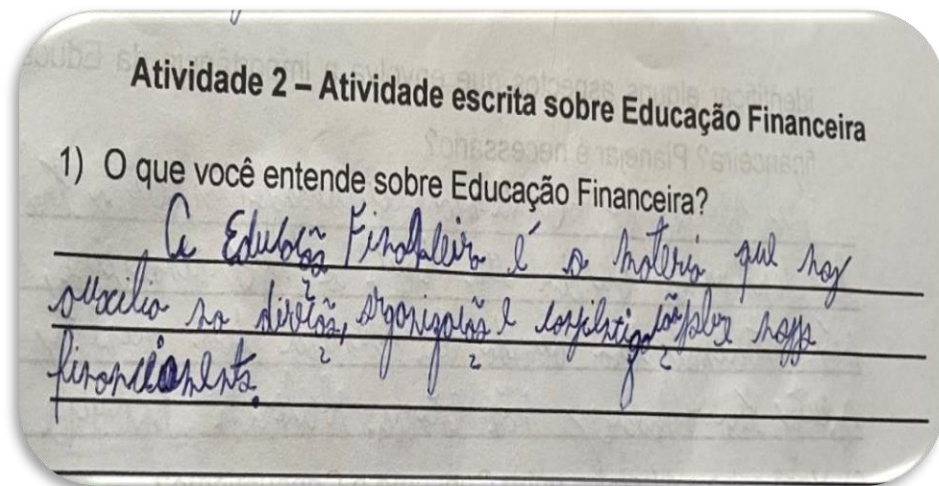 Atividade 2 – Atividade escrita sobre Educação Financeira
1) O que você entende sobre Educação Financeira?
A Educação Financeira é a materia que nos
auxilia na direção, organização e sobre nosso
financiamento.